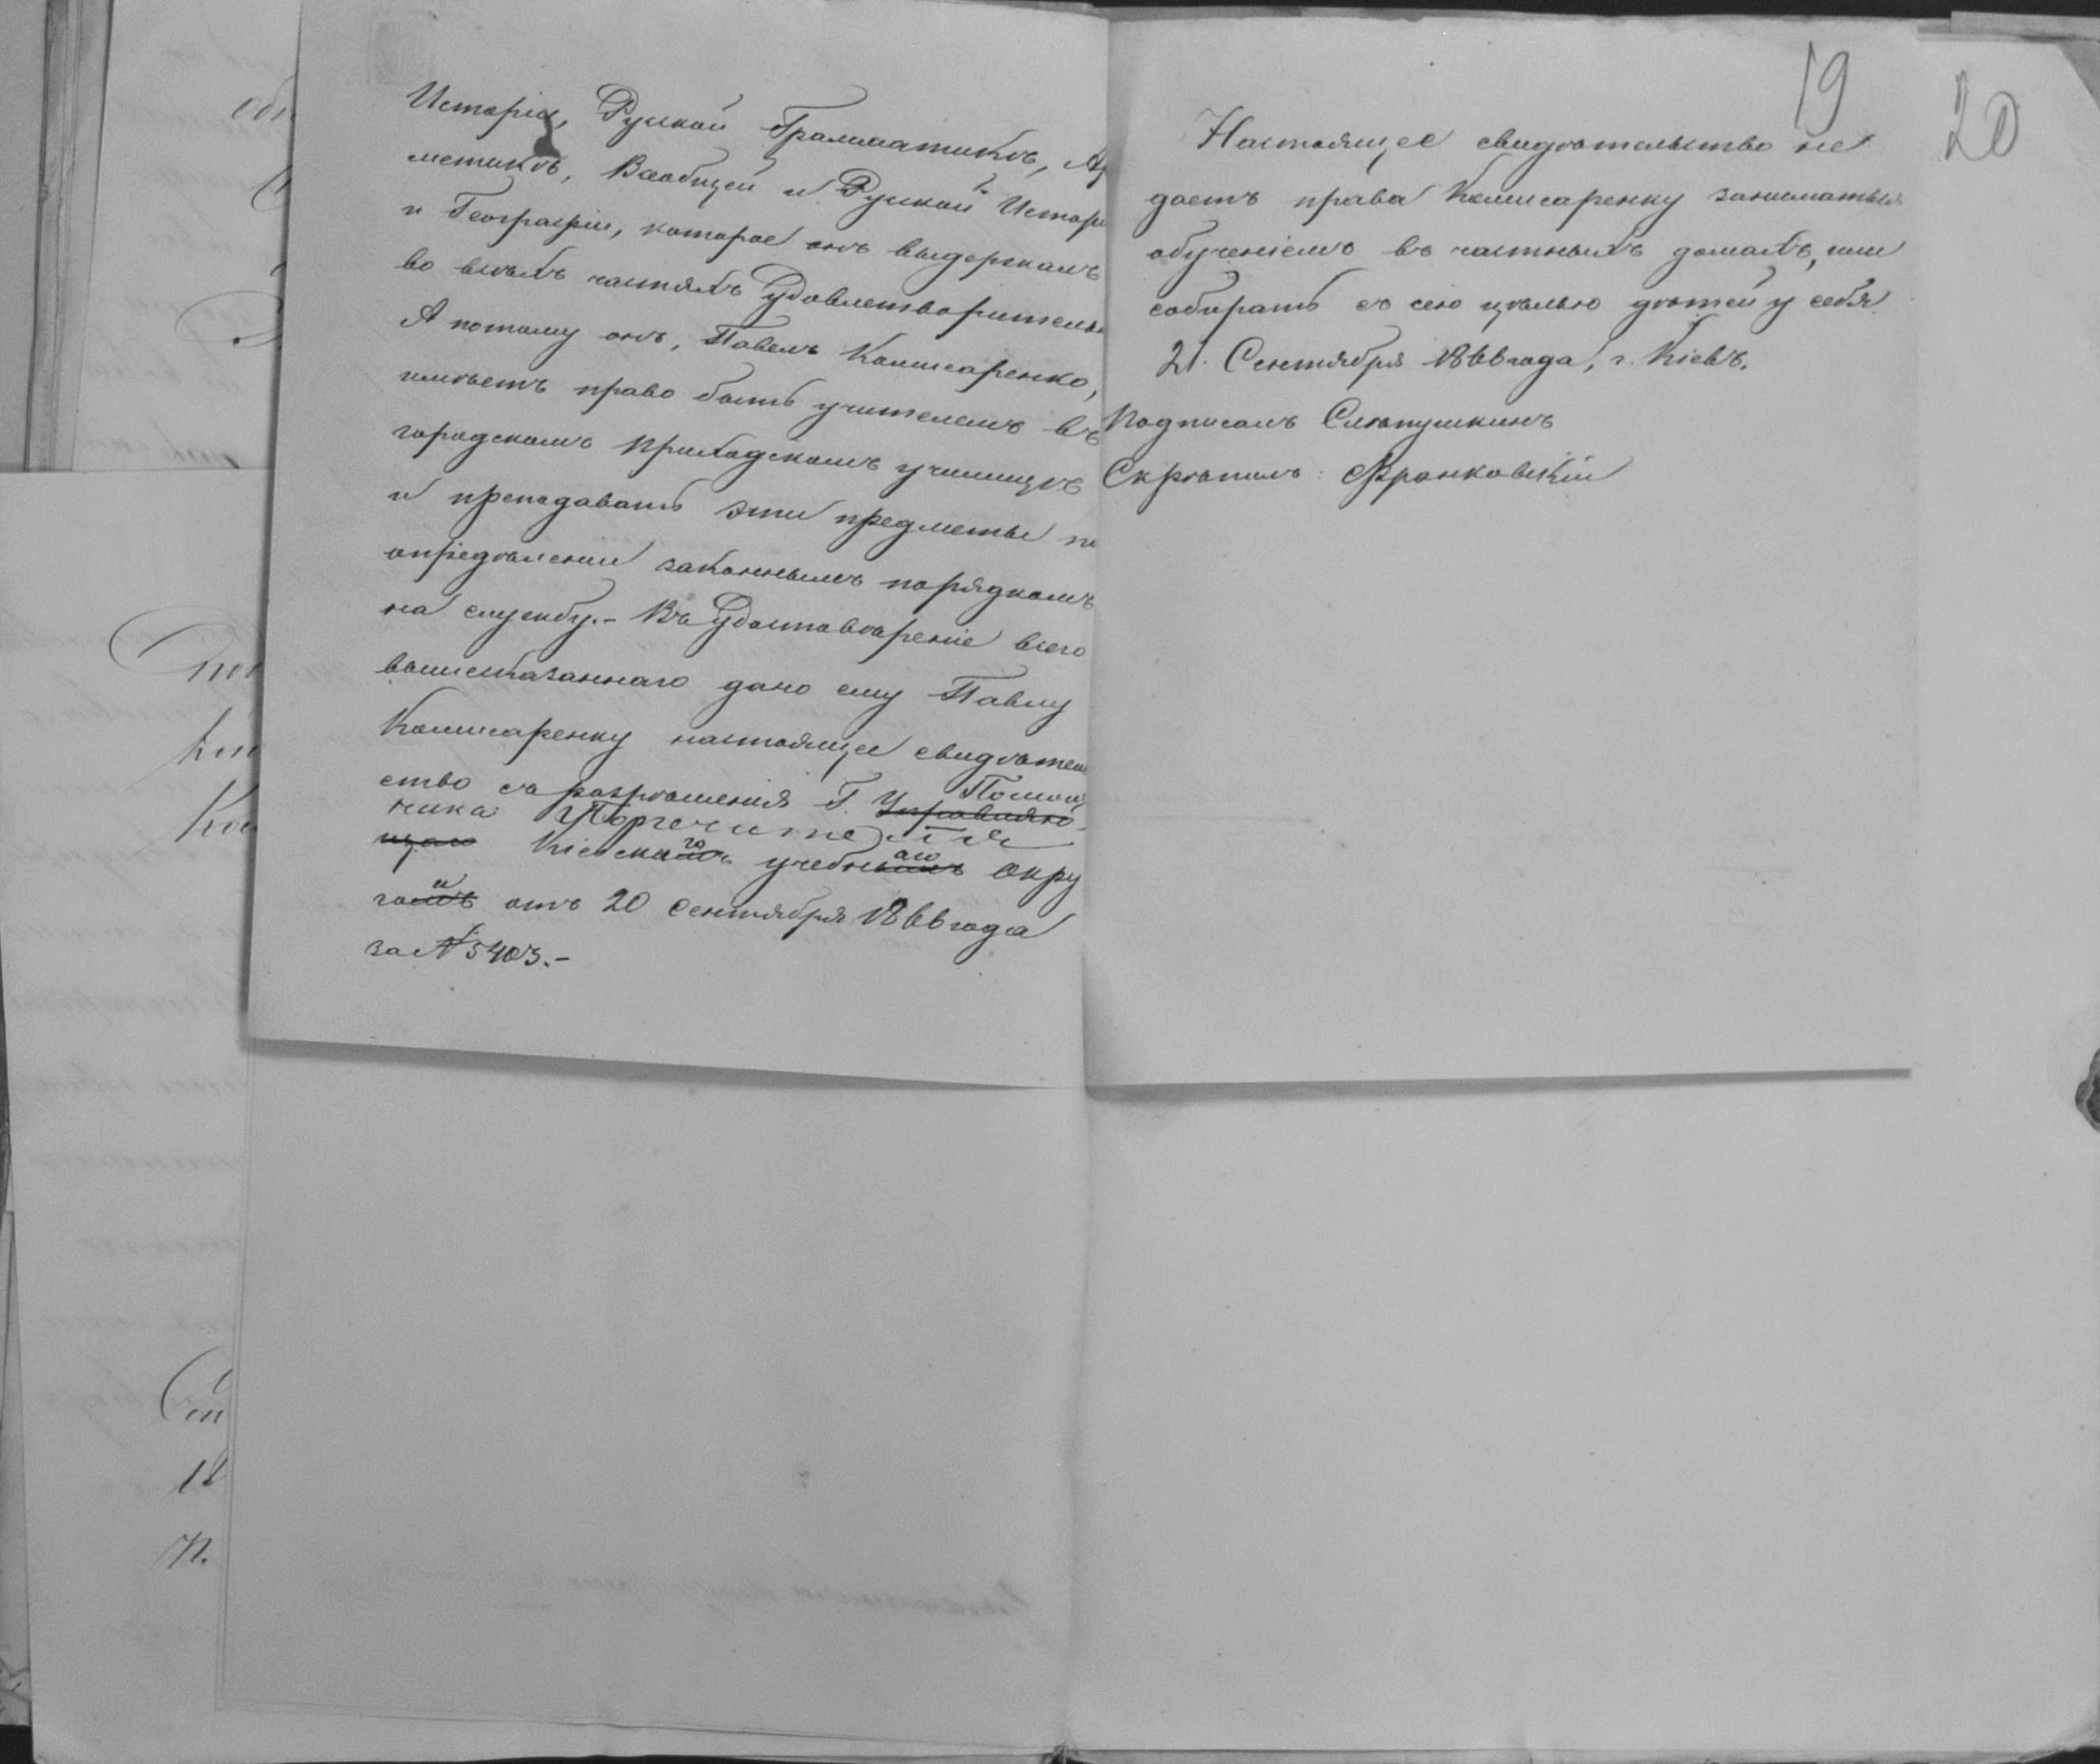 Исторіи, Руской Грамматикѣ, Ар
метикѣ, Всеобщей и Руской Истори
и Географіи, которое онъ выдержалъ
во всѣхъ частяхъ удовлетворительн
А потому онъ, Павелъ Комисаренко,
имѣетъ право быть учителемъ въ
городскомъ приходскомъ училищѣ
и преподавать эти предметы по
опредѣленіи законнымъ порядкомъ
на службу.- Въ удостовѣреніе всего
вышесказаннаго дано ему Павлу
Комисаренку настоящее свидѣтель
ство съ разрѣшенія Г. Управляю Помощ
ника Попечителя
щаго Кіевскаго учебнаго Окру
га отъ 20 Сентября 1866 года
за № 5403.-
19
20
Настоящее свидѣтельство не
даетъ права Комисаренку заниматься
обученіемъ въ частныхъ домахъ, или
собирать съ сею цѣлью дѣтей у себя.
21. Сентября 1866 года, г. Кіевъ.
Подписалъ Слѣпушкинъ
Скрѣпилъ: Франковскій